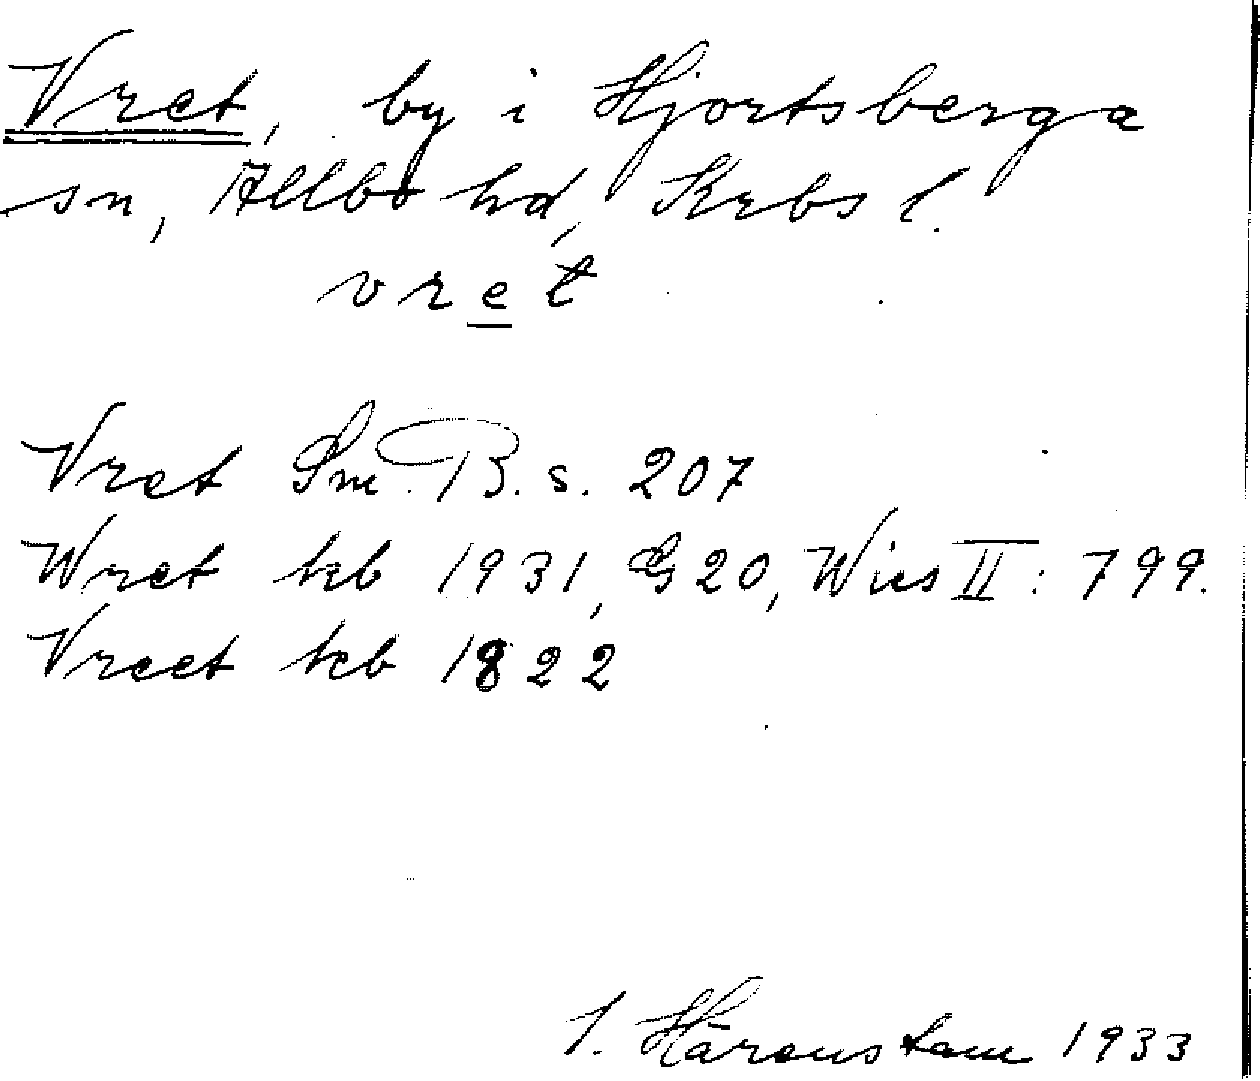 Vret, by i Hjortsberga
sn, Allbo hd, Krbs l.
vret
Vret Sm. B. s. 207
Wret kb 1931, G 20, Wies II: 799.
Vreet kb 1822
J. Härenstam 1933